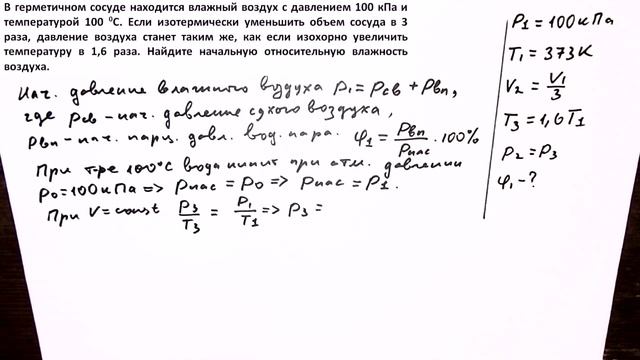 В герметичном сосуде находится влажный воздух с давлением 100 кПа и
температурой 100 ⁰С. Если изотермически уменьшить объем сосуда в 3
раза, давление воздуха станет таким же, как если изохорно увеличить
температуру в 1,6 раза. Найдите начальную относительную влажность
воздуха.
Нач. давление влажного воздуха P₁ = Pсв + Pвп,
где Pсв – нач. давление сухого воздуха,
Pвп – нач. парц. давл. вод. пара. φ₁ = Pвп/Pнас · 100%
При т-ре 100°C вода кипит при атм. давлении
P₀ = 100кПа => Pнас = P₀ => Pнас = P₁.
При V = const P₃/T₃ = P₁/T₁ => P₃ =
P₁ = 100кПа
T₁ = 373К
V₂ = V₁/3
T₃ = 1,6T₁
P₂ = P₃
φ₁ – ?